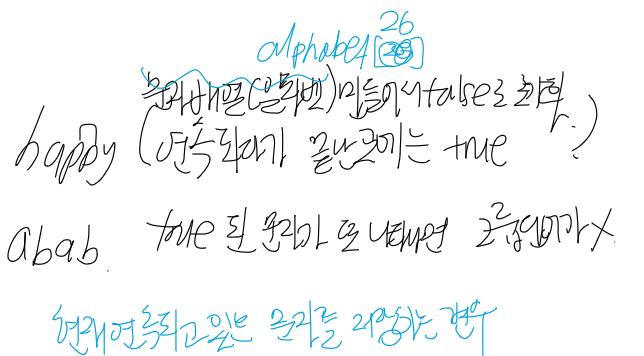 26
alphabet[26]
문자배열(알파벳)만들어서false로 초기화.
happy (연속되다가 끝난곳에는 true)
abab. true 된 문자가 또 나타나면 그룹단어가 X.
현재 연속되고 있는 문자를 저장하는 변수